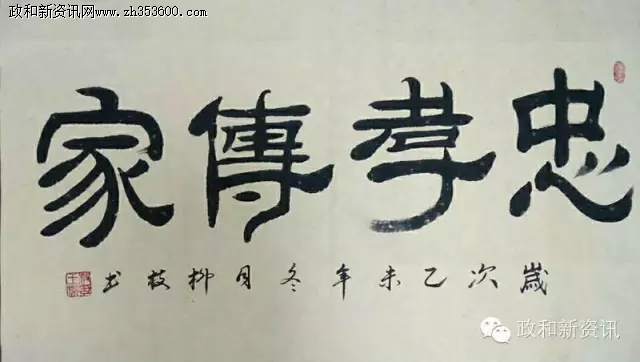 政和新资讯网www.zh353600.com
忠孝傳家
歲次乙未年冬月柳枝书
政和新资讯